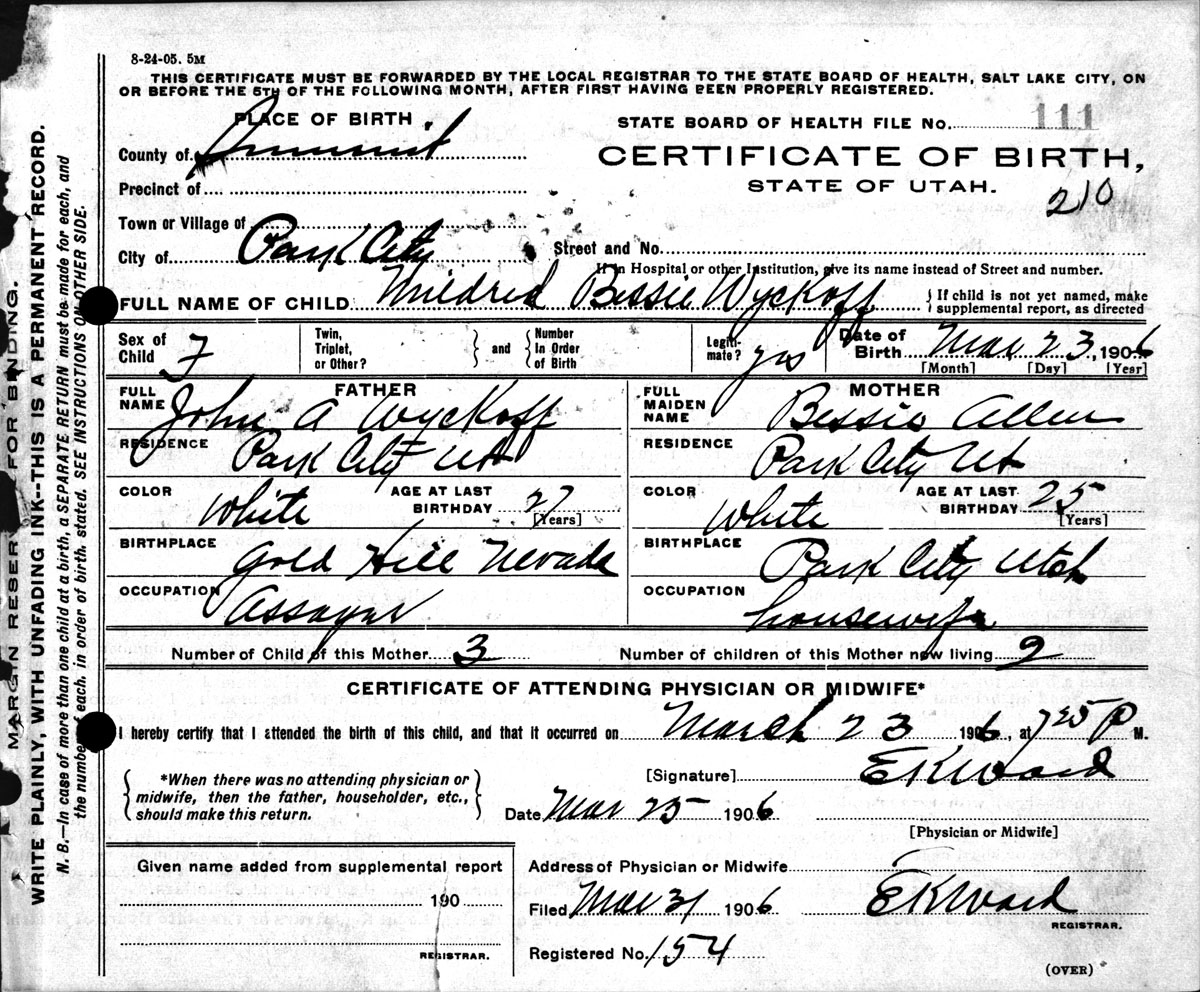 8-24-05. 5M
THIS CERTIFICATE MUST BE FORWARDED BY THE LOCAL REGISTRAR TO THE STATE BOARD OF HEALTH, SALT LAKE CITY, ON
OR BEFORE THE 5TH OF THE FOLLOWING MONTH, AFTER FIRST HAVING BEEN PROPERLY REGISTERED.
PLACE OF BIRTH
STATE BOARD OF HEALTH FILE No. 111
County of Summit
CERTIFICATE OF BIRTH,
STATE OF UTAH.
210
Precinct of
Town or Village of
City of Park City
Street and No.
If in Hospital or other Institution, give its name instead of Street and number.
FULL NAME OF CHILD Mildred Bessie Wyckoff
If child is not yet named, make
supplemental report, as directed
Sex of
Child F
Twin,
Triplet,
or Other?
and
Number
In Order
of Birth
Legiti-
mate? yes
Date of
Birth Mar 23, 1906
[Month] [Day] [Year]
FATHER
FULL
NAME John A Wyckoff
RESIDENCE Park City Ut
COLOR White
AGE AT LAST
BIRTHDAY 27
[Years]
BIRTHPLACE Gold Hill Nevada
OCCUPATION Assayer
MOTHER
FULL
MAIDEN
NAME Bessie Allen
RESIDENCE Park City Ut
COLOR White
AGE AT LAST
BIRTHDAY 25
[Years]
BIRTHPLACE Park City Utah
OCCUPATION housewife
Number of Child of this Mother 3
Number of children of this Mother now living 2
CERTIFICATE OF ATTENDING PHYSICIAN OR MIDWIFE*
I hereby certify that I attended the birth of this child, and that it occurred on March 23 1906, at 7 25 P M.
*When there was no attending physician or
midwife, then the father, householder, etc.,
should make this return.
[Signature] E K Ward
Date Mar 25 1906
[Physician or Midwife]
Given name added from supplemental report
190
REGISTRAR.
Address of Physician or Midwife
Filed Mar 31 1906
E K Ward
REGISTRAR.
Registered No. 154
(OVER)
MARGIN RESERV FOR BINDING.
WRITE PLAINLY, WITH UNFADING INK--THIS IS A PERMANENT RECORD.
N. B.—In case of more than one child at a birth, a SEPARATE RETURN must be made for each, and
the number of each, in order of birth, stated. SEE INSTRUCTIONS ON OTHER SIDE.